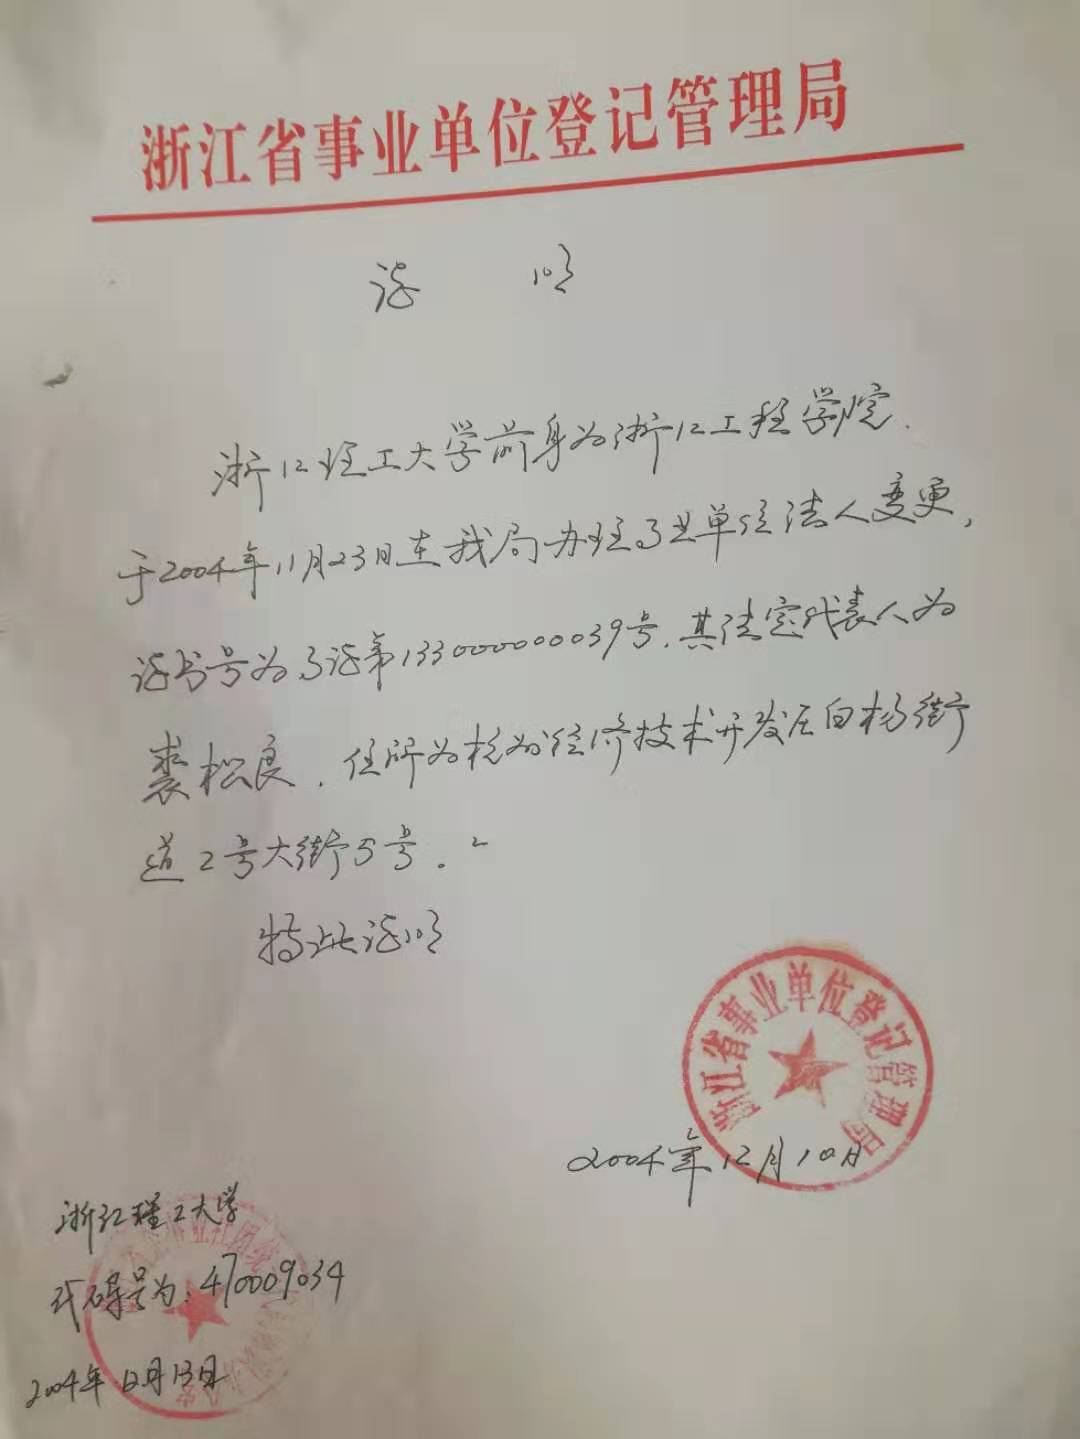 浙江省事业单位登记管理局
证 明
浙江理工大学前身为浙江工程学院.
于2004年11月23日在我局办理了事业单位法人变更,
证书号为事证第133000000039号.其法定代表人为
裘松良.住所为杭州经济技术开发区白杨街
道2号大街5号.
特此证明
浙江省事业单位登记管理局
2004年12月10日
浙江理工大学
代码号为:470009034
2004年12月13日